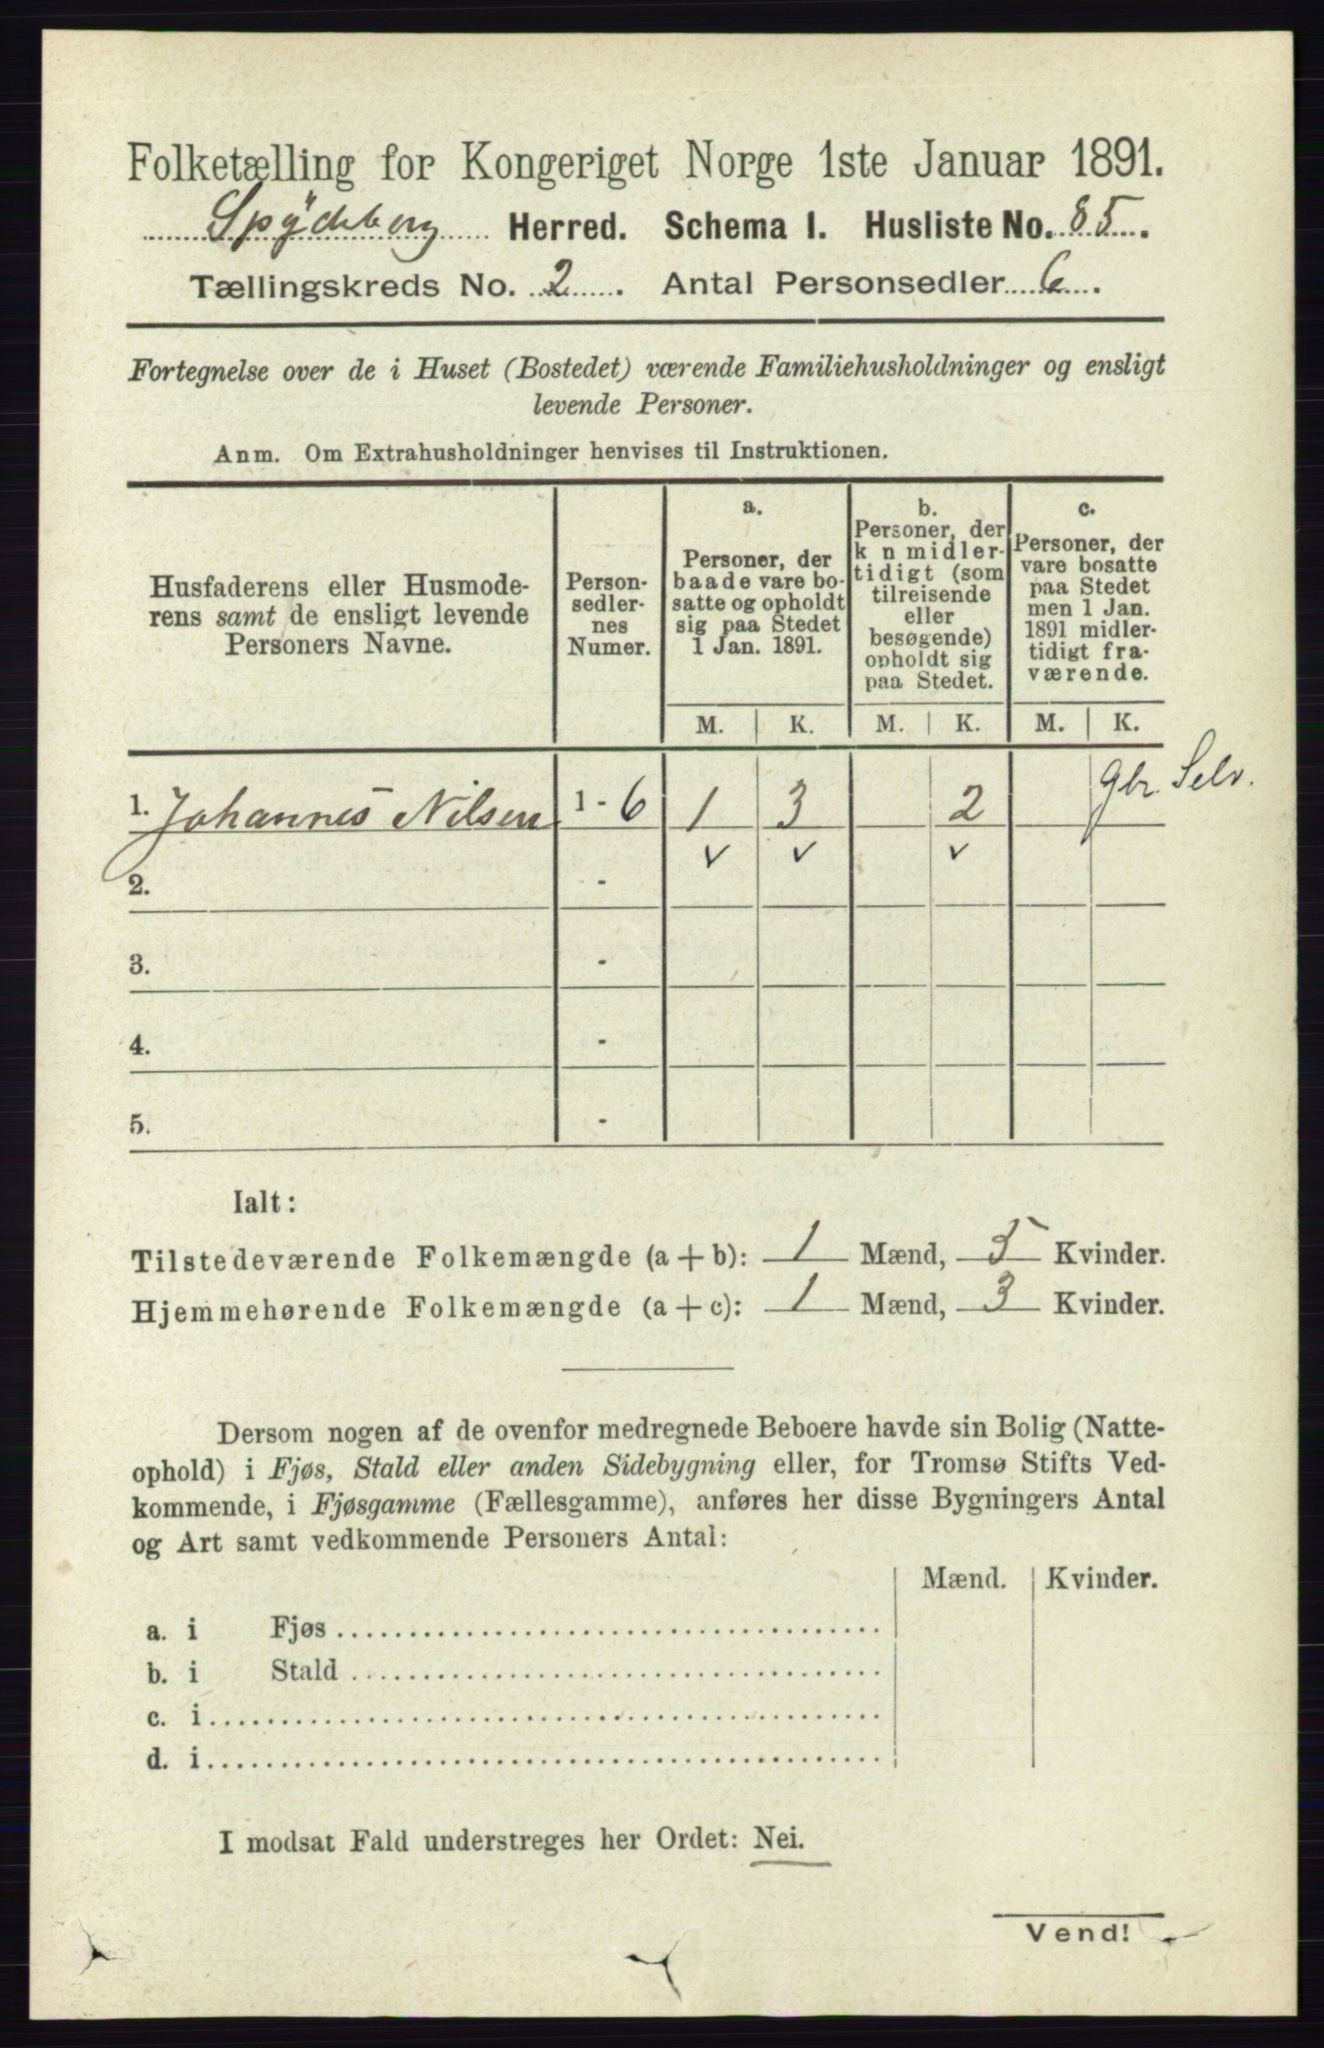 Folketælling for Kongeriget Norge 1ste Januar 1891.
Spydeberg Herred. Schema I. Husliste No. 85.
Tællingskreds No. 2. Antal Personsedler 6.
Fortegnelse over de i Huset (Bostedet) værende Familiehusholdninger og ensligt
levende Personer.
Anm. Om Extrahusholdninger henvises til Instruktionen.
Husfaderens eller Husmode-
rens samt de ensligt levende
Personers Navne.
Person-
sedler-
nes
Numer.
a.
Personer, der
baade vare bo-
satte og opholdt
sig paa Stedet
1 Jan. 1891.
b.
Personer, der
k n midler-
tidigt (som
tilreisende
eller
besøgende)
opholdt sig
paa Stedet.
c.
Personer, der
vare bosatte
paa Stedet
men 1 Jan.
1891 midler-
tidigt fra-
værende.
M. K. M. K. M. K.
1. Johannes Nilsen 1 - 6 1 3 2 gbr. Selv.
✓ ✓ ✓
2. -
3. -
4. -
5. -
Ialt:
Tilstedeværende Folkemængde (a + b): 1 Mænd, 5 Kvinder.
Hjemmehørende Folkemængde (a + c): 1 Mænd, 3 Kvinder.
Dersom nogen af de ovenfor medregnede Beboere havde sin Bolig (Natte-
ophold) i Fjøs, Stald eller anden Sidebygning eller, for Tromsø Stifts Ved-
kommende, i Fjøsgamme (Fællesgamme), anføres her disse Bygningers Antal
og Art samt vedkommende Personers Antal:
Mænd. Kvinder.
a. i Fjøs
b. i Stald
c. i
d. i
I modsat Fald understreges her Ordet: Nei.
Vend!